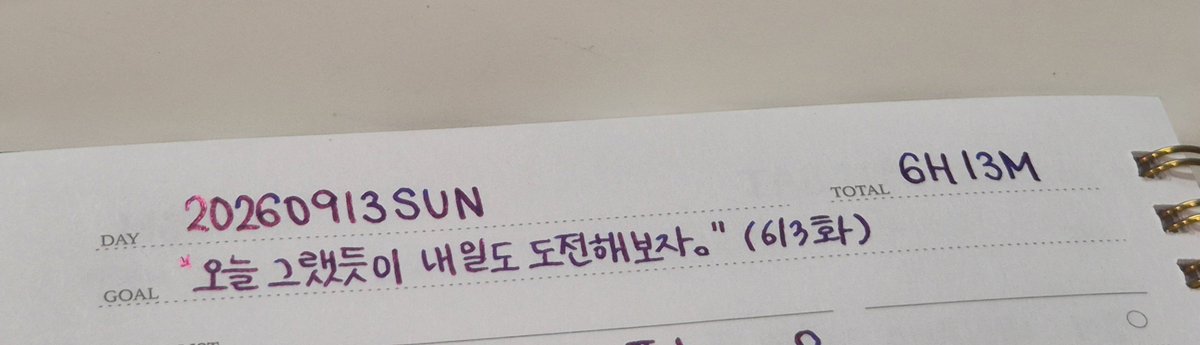 DAY 20260913SUN
TOTAL 6H13M
GOAL "오늘 그랬듯이 내일도 도전해보자." (613화)